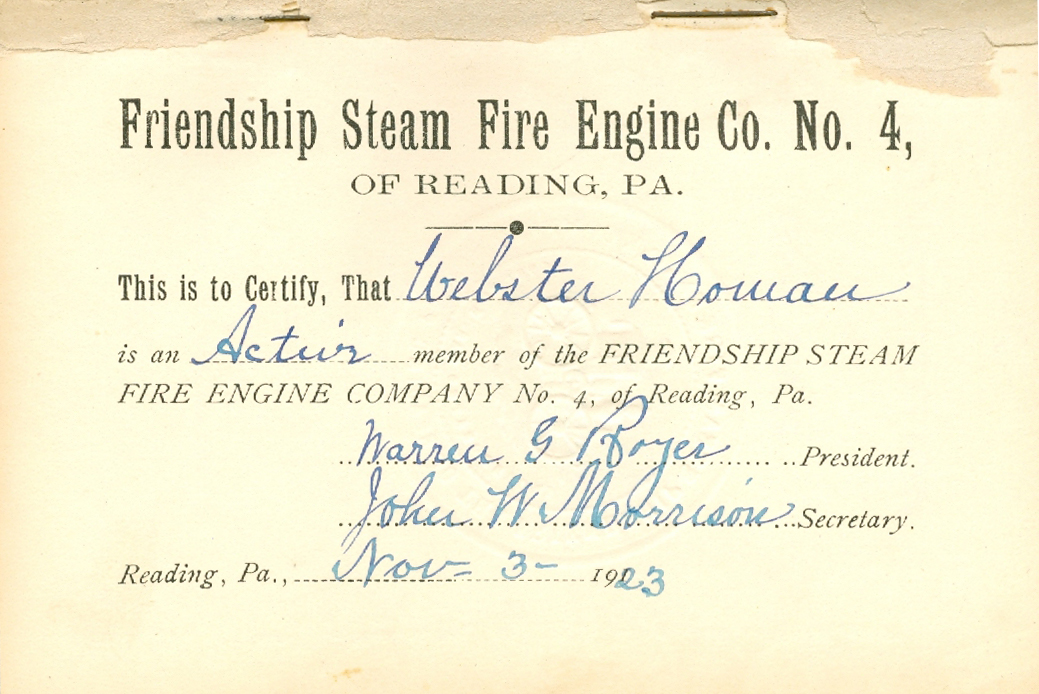 Friendship Steam Fire Engine Co. No. 4,
OF READING, PA.
This is to Certify, That Webster Homan
is an Active member of the FRIENDSHIP STEAM
FIRE ENGINE COMPANY No. 4, of Reading, Pa.
Warren G Royer President.
John W Morrison Secretary.
Reading, Pa., Nov= 3- 1923